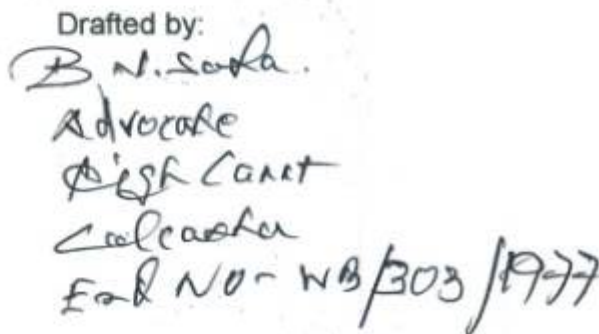 Drafted by:
B N. Saha.
Advocate
High Court
Calcutta
End NO - WB/303/1977